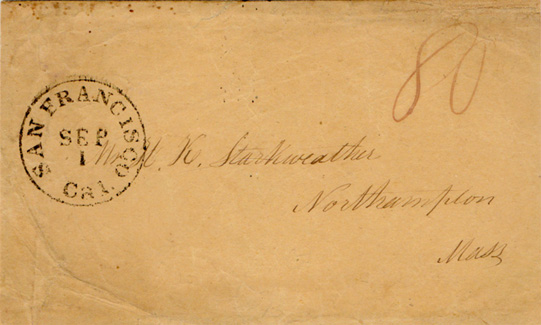 80
SAN FRANCISCO
SEP
1
Cal.
H. K. Starkweather
Northampton
Mass